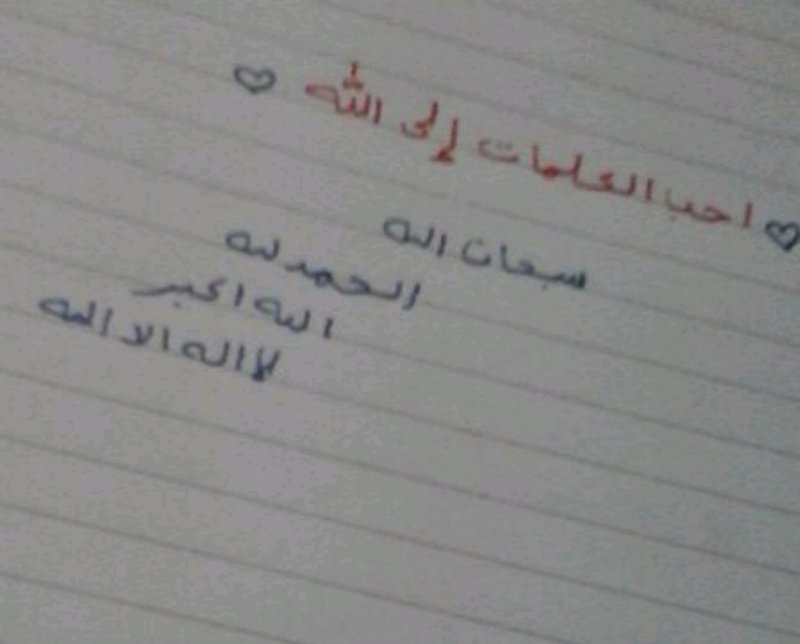 ♡ احب الكلمات إلى الله ♡
سبحان الله
الحمد لله
الله اكبر
لا اله الا الله